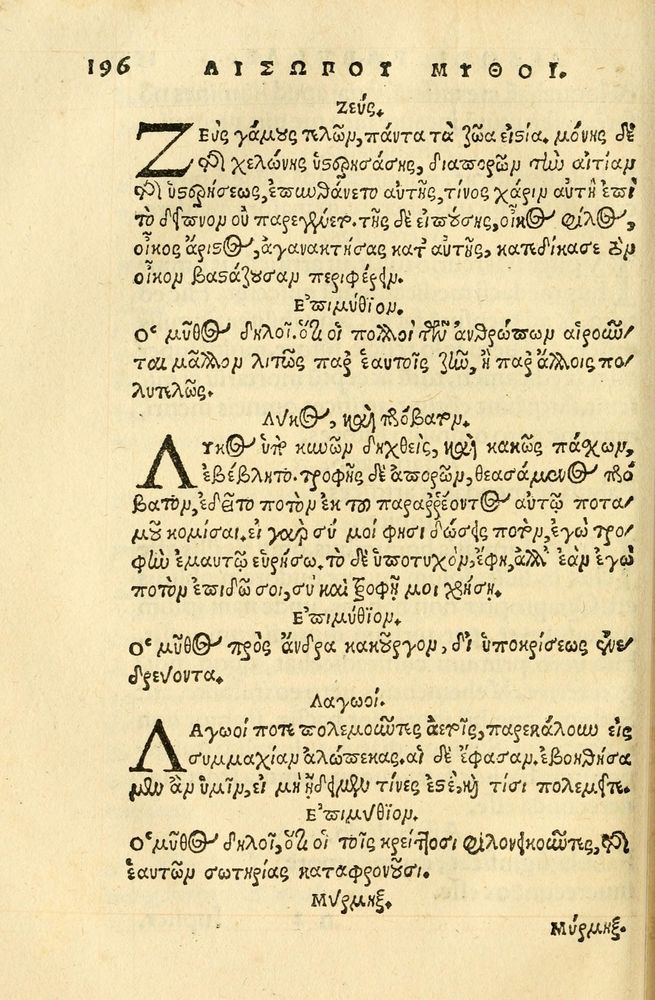 196 ΑΙΣΩΠΟΥ ΜΥΘΟΙ.
Ζεύς.
ΖΕὺς γάμους τελῶν, πάντα τὰ ζῶα εἱστία. μόνης δὲ
τῆς χελώνης ὑστερησάσης, διαπορῶν τὴν αἰτίαν
τῆς ὑστερήσεως, ἐπυνθάνετο αὐτῆς, τίνος χάριν αὐτὴ ἐπὶ
τὸ δεῖπνον οὐ παρεγένετο. τῆς δὲ εἰπούσης, οἶκος φίλος,
οἶκος ἄριστος, ἀγανακτήσας κατ' αὐτῆς, κατεδίκασε τὸν
οἶκον βαστάζουσαν περιφέρειν.
Ἐπιμύθιον.
Ὁ μῦθος δηλοῖ. ὅτι οἱ πολλοὶ τῶν ἀνθρώπων αἱροῦν/
ται μᾶλλον λιτῶς παρ' ἑαυτοῖς ζῆν, ἢ παρ' ἄλλοις πο/
λυτελῶς.
Λύκος, καὶ πρόβατον.
ΛΥκος ὑπὸ κυνῶν δηχθεὶς, καὶ κακῶς πάσχων,
ἐβέβλητο. τροφῆς δὲ ἀπορῶν, θεασάμενος πρό
βατον, ἐδεῖτο ποτὸν ἐκ τοῦ παραῤῥέοντος αὐτῷ ποτα/
μοῦ κομίσαι. εἰ γὰρ σύ μοί φησι δώσεις ποτὸν, ἐγὼ τρο/
φὴν ἐμαυτῷ εὑρήσω. τὸ δὲ ὑποτυχὸν, ἔφη, ἀλλ' ἐὰν ἐγὼ
ποτὸν ἐπιδῶ σοι, σὺ καὶ τροφῇ μοι χρήσῃ.
Ἐπιμύθιον.
Ὁ μῦθος πρὸς ἄνδρα κακοῦργον, δι' ὑποκρίσεως ἐνε/
δρεύοντα.
Λαγωοί.
ΛΑγωοί ποτε πολεμοῦντες ἀετοῖς, παρεκάλουν εἰς
συμμαχίαν ἀλώπεκας. αἱ δὲ ἔφασαν. ἐβοηθήσα
μεν ἂν ὑμῖν, εἰ μὴ ᾔδειμεν τίνες ἐστέ, καὶ τίσι πολεμεῖτε.
Ἐπιμύθιον.
Ὁ μῦθος δηλοῖ, ὅτι οἱ τοῖς κρείττοσι φιλονεικοῦντες, τῆς
ἑαυτῶν σωτηρίας καταφρονοῦσι.
Μύρμηξ.
Μύρμηξ.